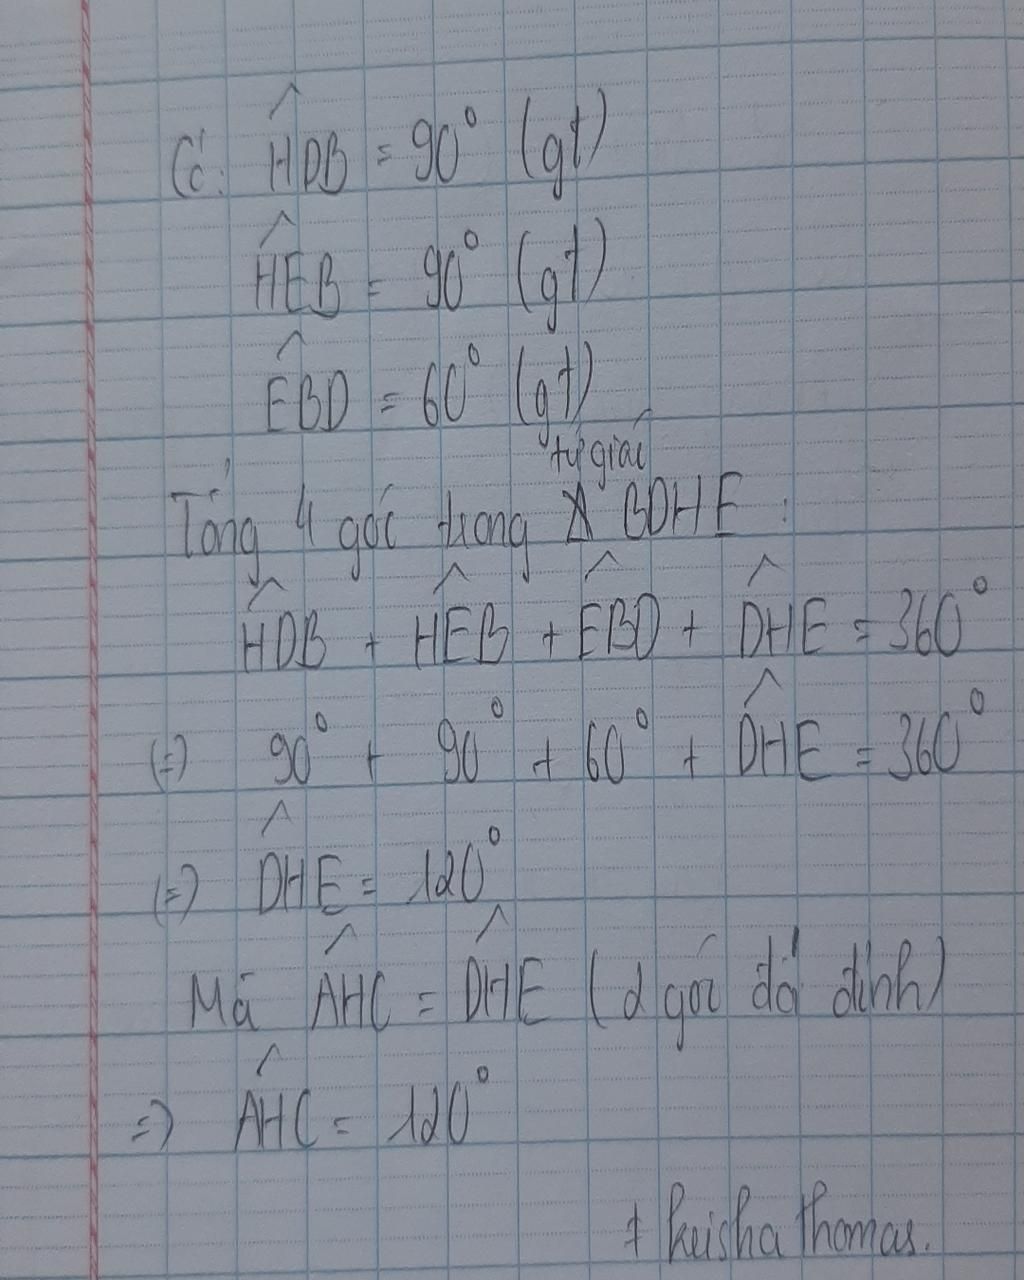 Có: HDB = 90° (gt)
HEB = 90° (gt)
EBD = 60° (gt)
tứ giác
Tổng 4 góc trong BDHE :
HDB + HEB + EBD + DHE = 360°
(=) 90° + 90° + 60° + DHE = 360°
(=) DHE = 120°
Mà AHC = DHE (2 góc đđ đỉnh)
=) AHC = 120°
+ keisha thomas.